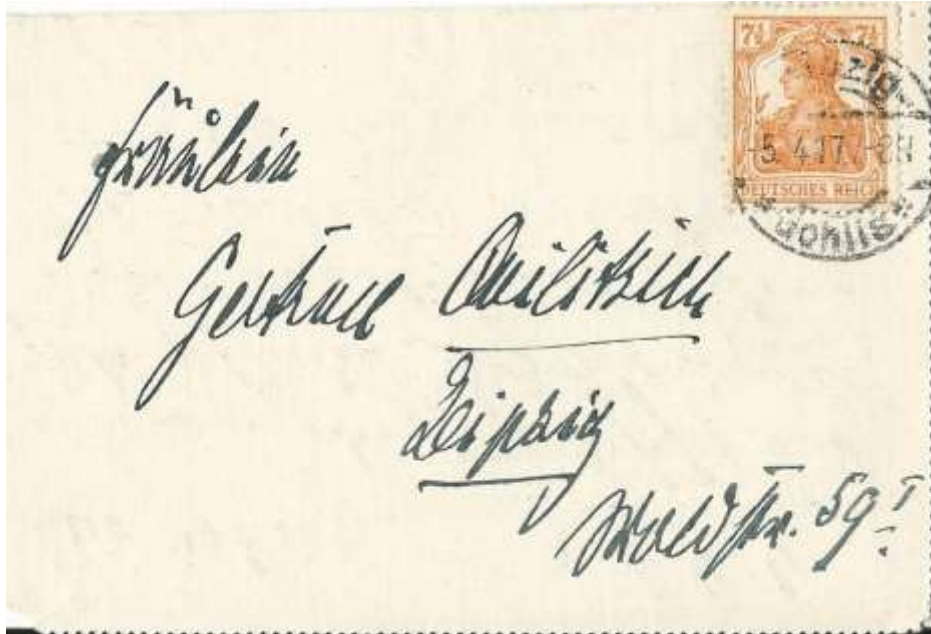 7½ 7½
-5. 4.17. -8N
DEUTSCHES REICH
Gohlis
Fräulein
Gertrud
Leipzig
Waldstr. 59 I